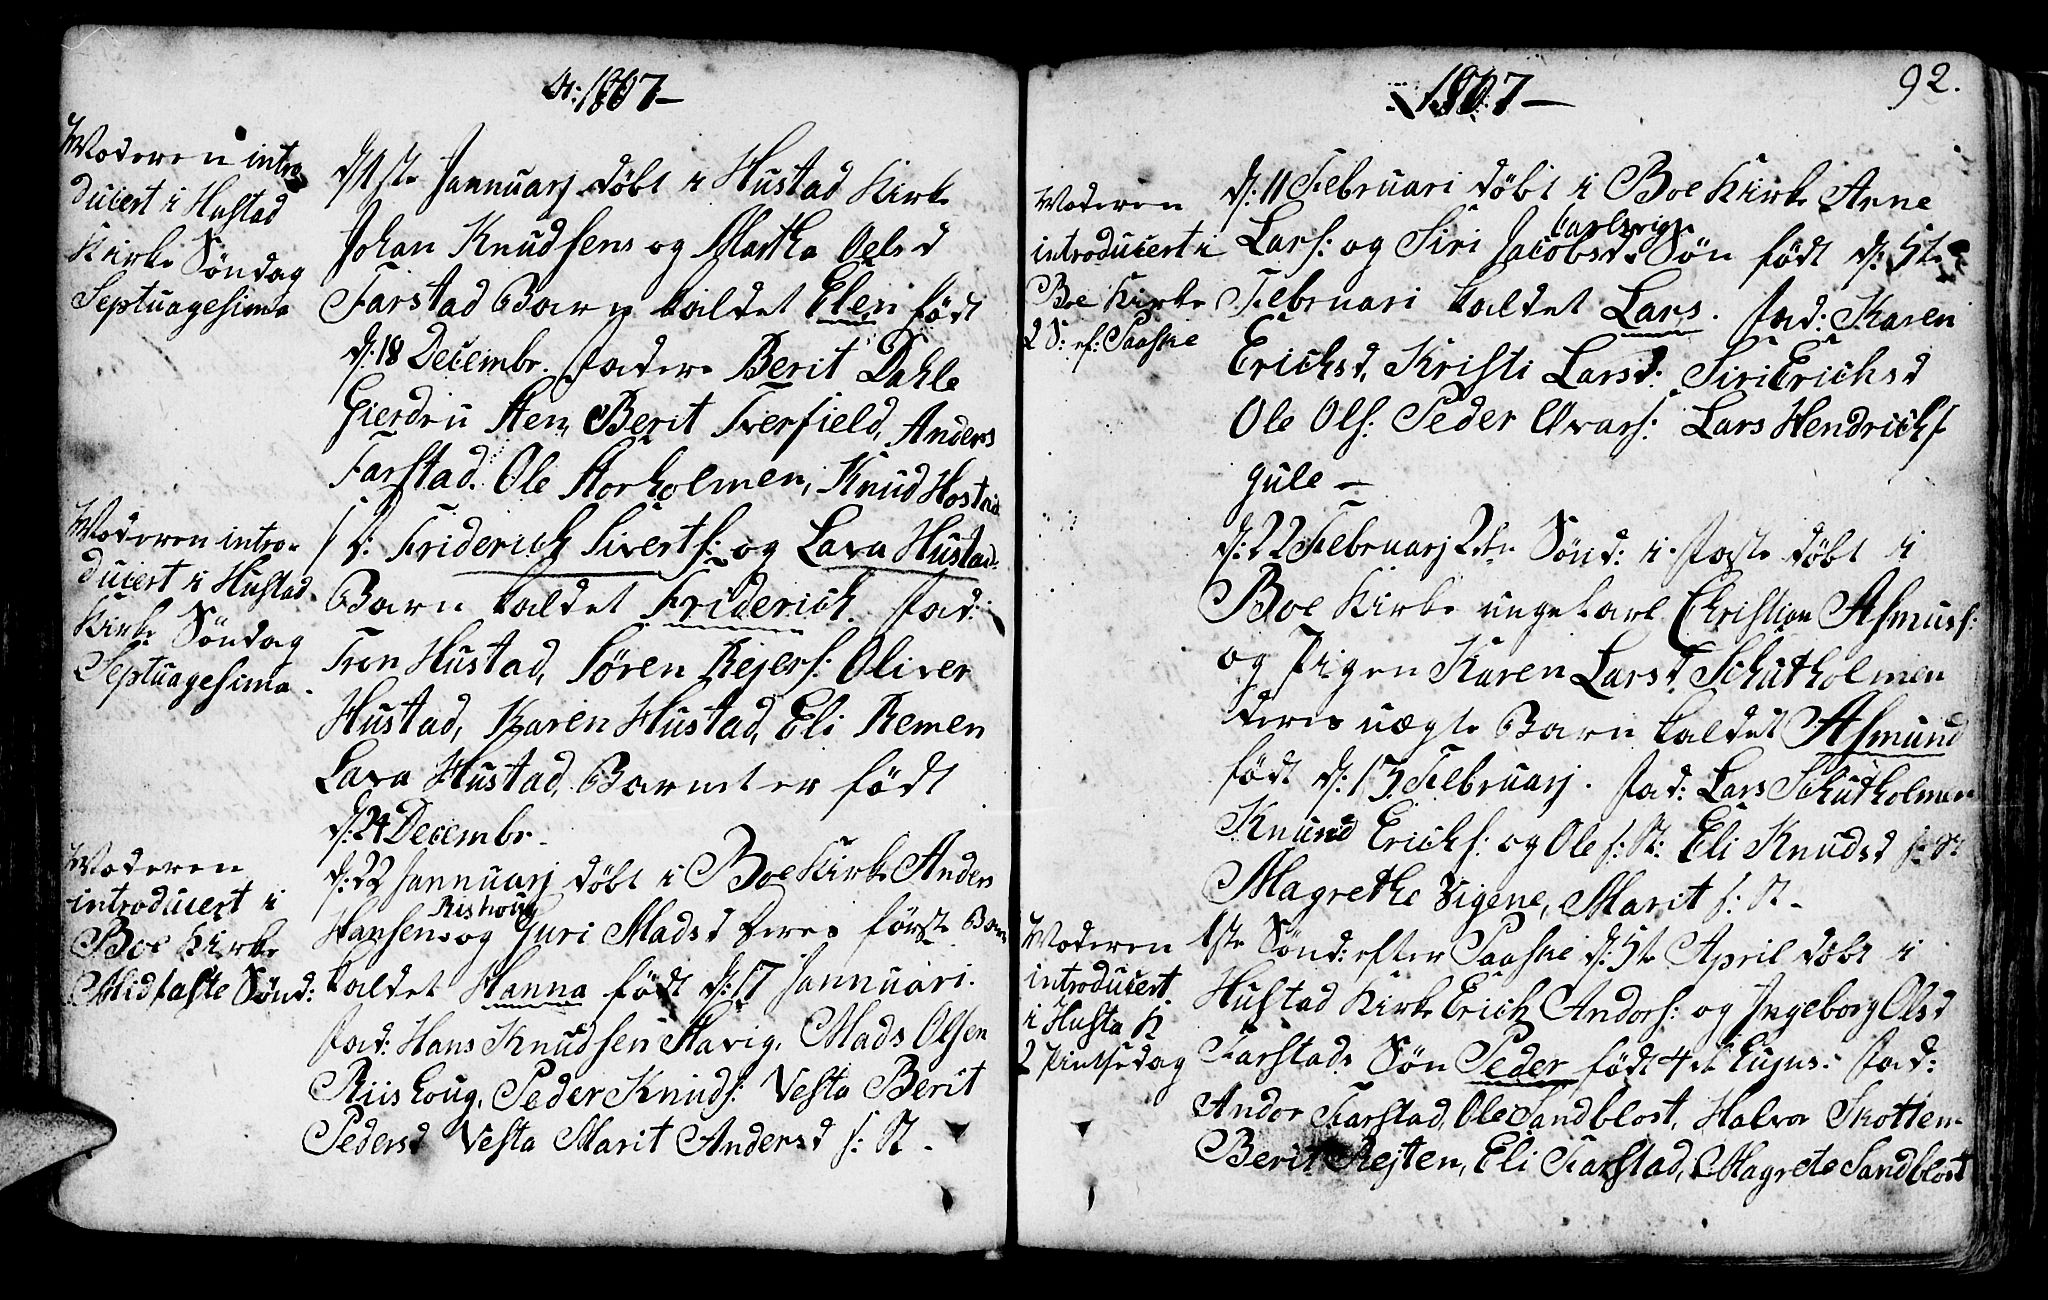 A: 1807 –
Moderen intro
ducert i Hustad
Kirke Søndag
Septuagesima
d. 1ste Jannuarj døbt i Hustad Kirke
Johan Knudsens og Martha Oels d
Farstad Barn kaldet Elen født
d: 18 Decembr. Fadere Berit Dahle
Gierdru Hen, Berit Tverfield, Anders
Farstad. Ole Storholmen, Knud Hostad
Moderen intro-
ducert i Hustad
Kirke Søndag
Septuagesima.
S: D: Friderich Sivertf: og Lava Hustad
Barn kaldet Friderich. Fad:
Tron Hustad, Søren Rejers: Oliver
Hustad, Karen Hustad, Eli Remen
Lava Hustad, Barnet er født
d: 24 Decembr.
Moderen
introducert i
Boe Kirke
Midfaste Sønd:
d: 22 Jannuarj døbt i Boe Kirke Anders
Rishoug
Hansens og Guri Madsd deres første Barn
kaldet Hanna født d: 17 Jannuari.
Fad: Hans Knudsen Havig, Mads Olsen
Riishoug, Peder Knuds: Vesta Berit
Pedersd Vesta Marit Andersd s: St.
1807 –
92.
Moderen
introducert i
Boe Kirke
2 S: ef: Paaske
d: 11 Februari døbt i Boe Kirke Arne
Lars: og Siri Jacobsd. Søn født d: 5te
Februari kaldet Lars. Fad: Karen
Erichsd, Kristi Larsd: Siri Erichsd
Ole Ols: Peder Ivars: Lars Hendrichs
gule –
d: 22 Februarj 2den Sønd: i Faste døbt i
Boe Kirke unge karl Christian Asmus:
og Pigen Karen Larsd Schutholmen
deres uægte Barn kaldet Asmund
født d: 13 Februarj. Fad: Lars Schutholmen
Knund Erichs: og Ole s: St: Eli Knudsd s: St:
Magrethe Vigene, Marit s: St.
Moderen
introducert
i Husta K
2 Pintsedag
1ste Sønd: efter Paaske d: 5te April døbt i
Hustad Kirke Erich Andors: og Ingeborg Olsd
Farstads Søn Peder født 4de ejus. Fad:
Andor Farstad, Ole Sandblost, Halvor Skotten
Berit Rejten, Eli Farstad, Magrete Sandblost